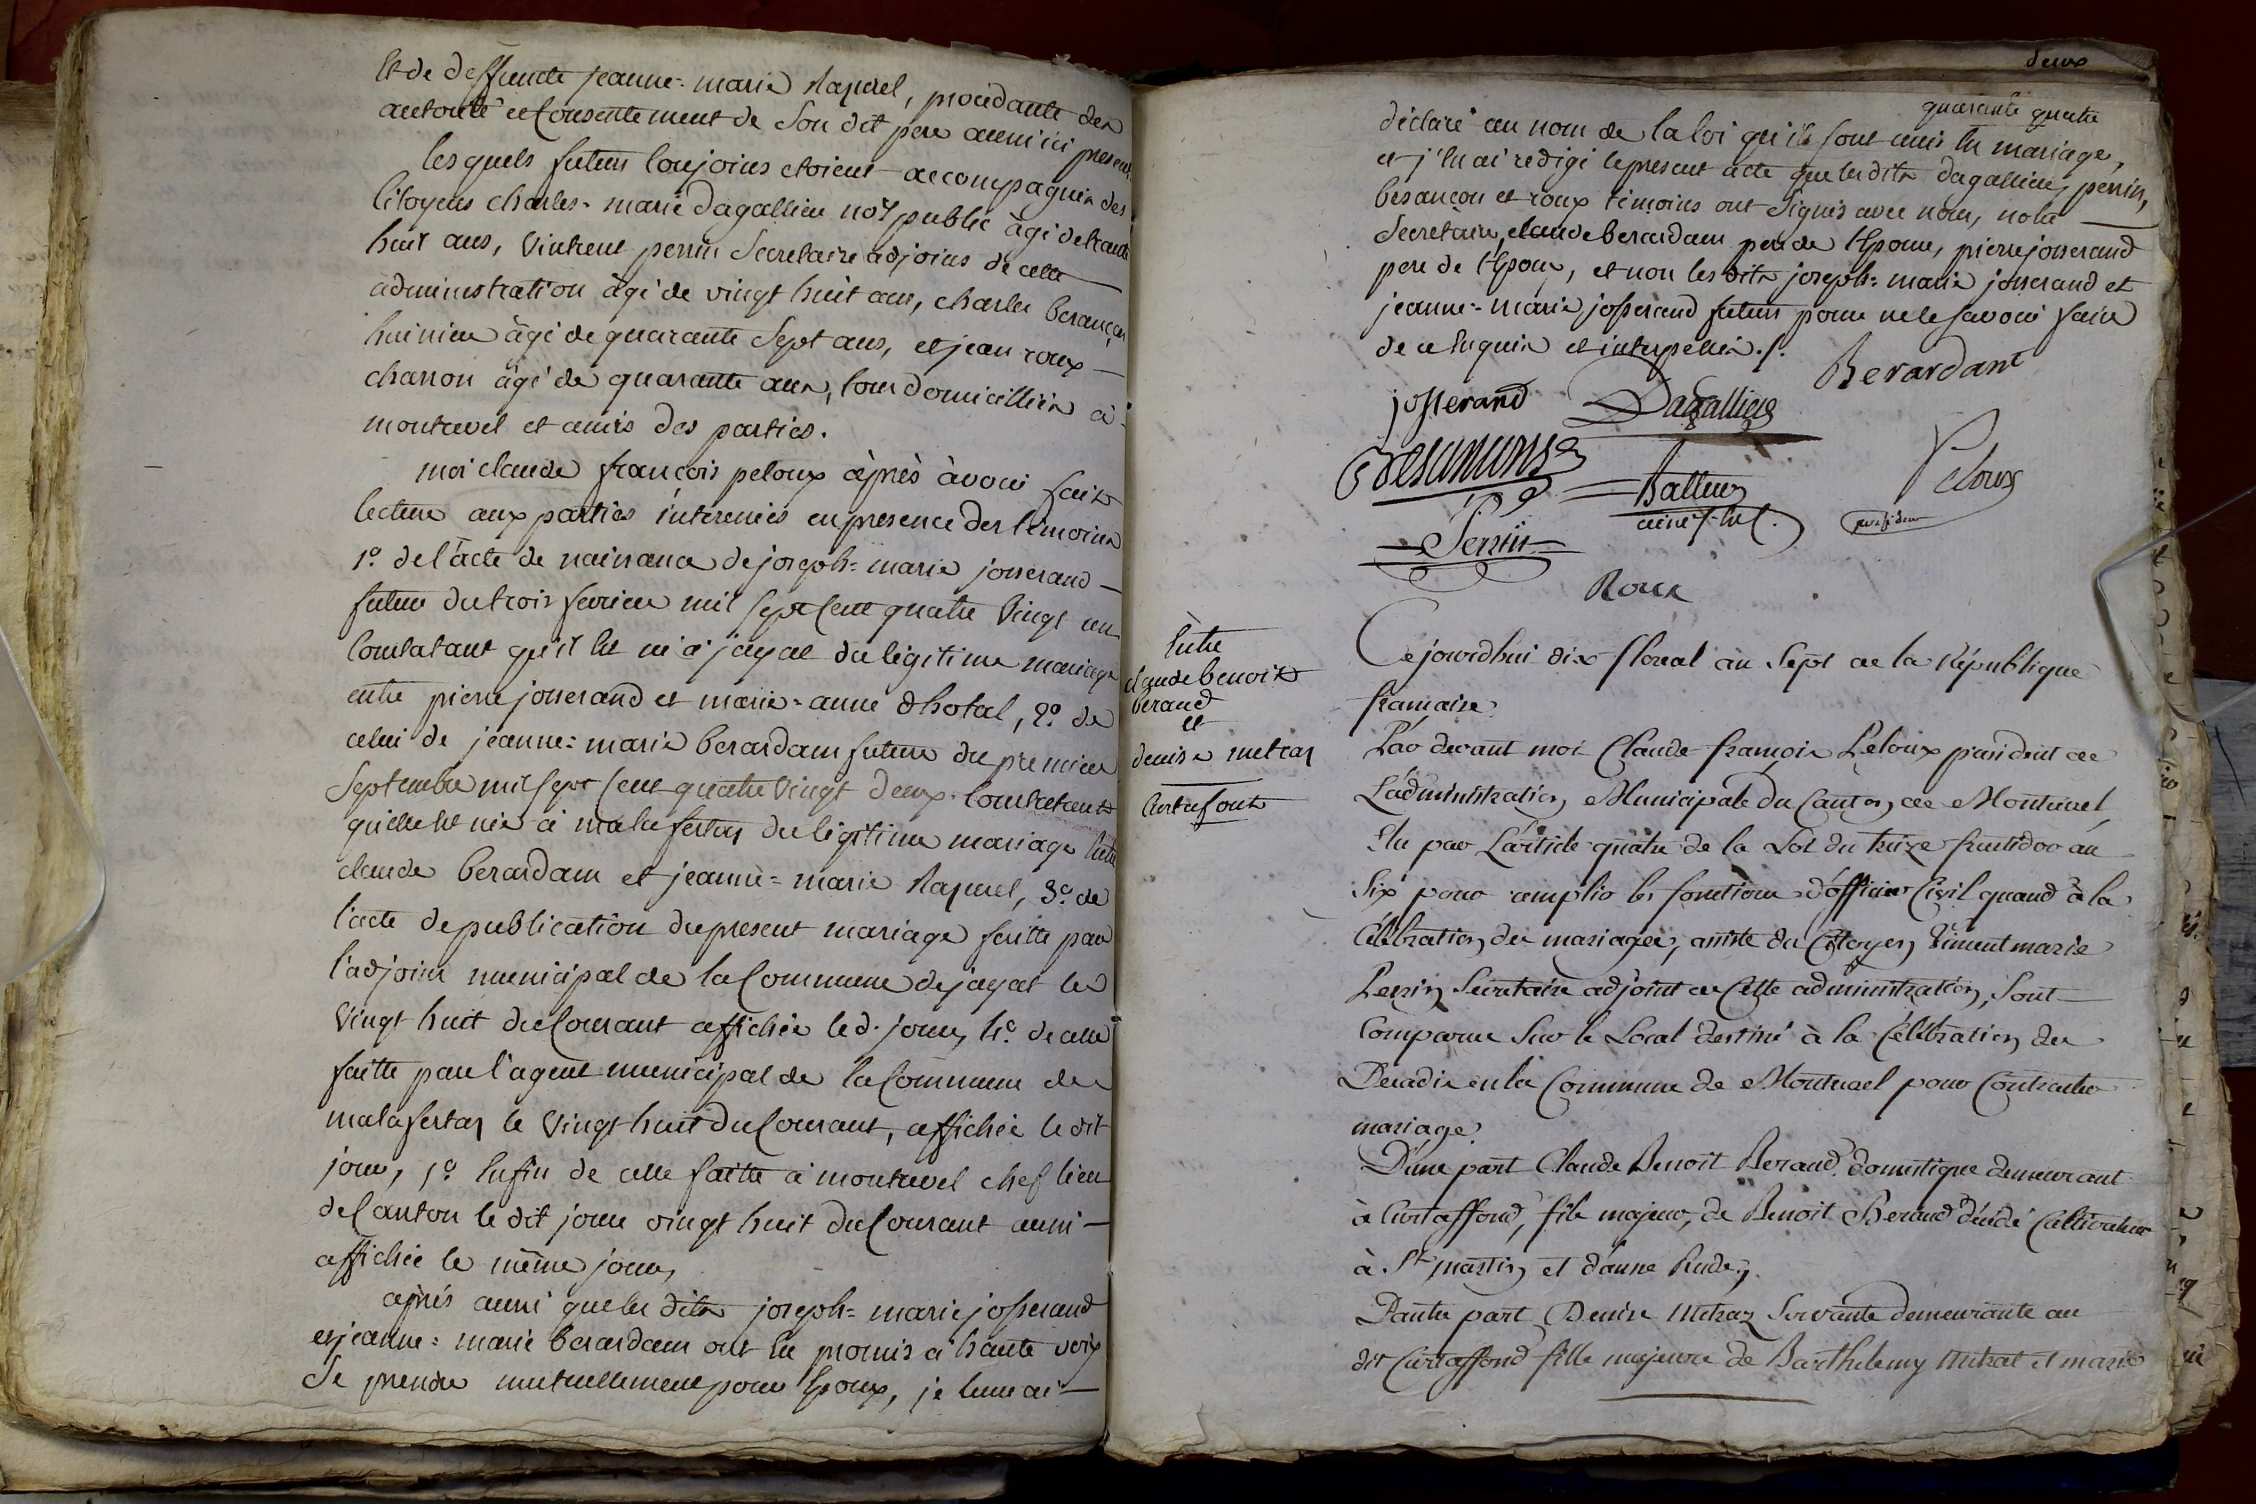 et de deffuncte jeanne=marie , procedante de
autorité et Consentement de Son dit pere aussi ici present
lesquels futurs Conjoins etoient accompagnés des
Citoyens charles=marie dagallier no.re public âgé de trante
huit ans, Vincent perrin Secretaire adjoint de cette
administration âgé de vingt huit ans, charles besançon
huissier âgé de quarante Sept ans, et jean roux
charron âgé de quarante ans, tous domicilliés à
montrevel et amis des parties.
moi claude françois peloux après avoir fait
lecture aux parties interessées en presence des temoins
1.o de l'acte de naissance de joseph=marie josserand
futur du trois fevrier mil Sept Cent quatre Vingt un
Constatant qu'il est né à jayat du légitime mariage
entre pierre josserand et marie=anne dhotal, 2.o de
celui de jeanne=marie berardam future du premier
Septembre mil Sept Cent quatre Vingt deux Constatant
qu'elle est née à malafertay du légitime mariage entre
claude berardam et jeanne=marie , 3.o de
l'acte de publication du present mariage faitte par
l'adjoint municipal de la Commune de jayat le
Vingt huit du Courant affichée led. jour, 4.o de celle
faitte par l'agent municipal de la Commune de
malafertay le Vingt huit du Courant, affichée le dit
jour, 5.o Enfin de celle faitte à montrevel chef lieu
de Canton le dit jour vingt huit du Courant aussi
affichée le même jour,
après aussi que les dits joseph=marie josserand
et jeanne=marie berardam ont Eu promis à haute voix
de prendre mutuellement pour Epoux, je leur ai
deux
quarante quatre
déclaré au nom de la loi qu'ils sont unis En mariage,
et j'En ai redigé le present acte que lesdits dagallier, perrin,
besançon et roux témoins ont Signés avec nous, notre
Secretaire, claude berardam pere de l'Epouse, pierre josserand
pere de l'Epoux, et non les dits joseph=marie josserand et
jeanne=marie josserand futurs pour ne le Savoir faire
de ce Enquis et interpellés./.
Berardant
josserand Dagallier
Besançon
Peloux
président
Perrin
Roux
Entre
claude benoit
berand
et
denise metray
Curtafont
Cejourdhui dix floreal an Sept de la République
française.
Par devant moi Claude françois Peloux president de
L'administration Municipale du Canton de Montrevel,
Elu par L'article quatre de la Loi du treize fructidor an
Six pour remplir les fonctions d'officier Civil quand à la
Célébration des mariages, assisté du Citoyen Vincent marie
Perrin Secretaire adjoint de Cette administration, Sont
Comparus Sur le Local destiné à la Célébration des
Decadis en la Commune de Montrevel pour Contracter
mariage.
D'une part Claude Benoit Berand domestique demeurant
à Curtaffond, fils majeur, de Benoit Berand décédé Cultivateur
à St martin et d'anne Rudey.
D'autre part Denise Metraz Servante demeurante au
dit Curtaffond fille majeure de Barthelemy Metrat et marie